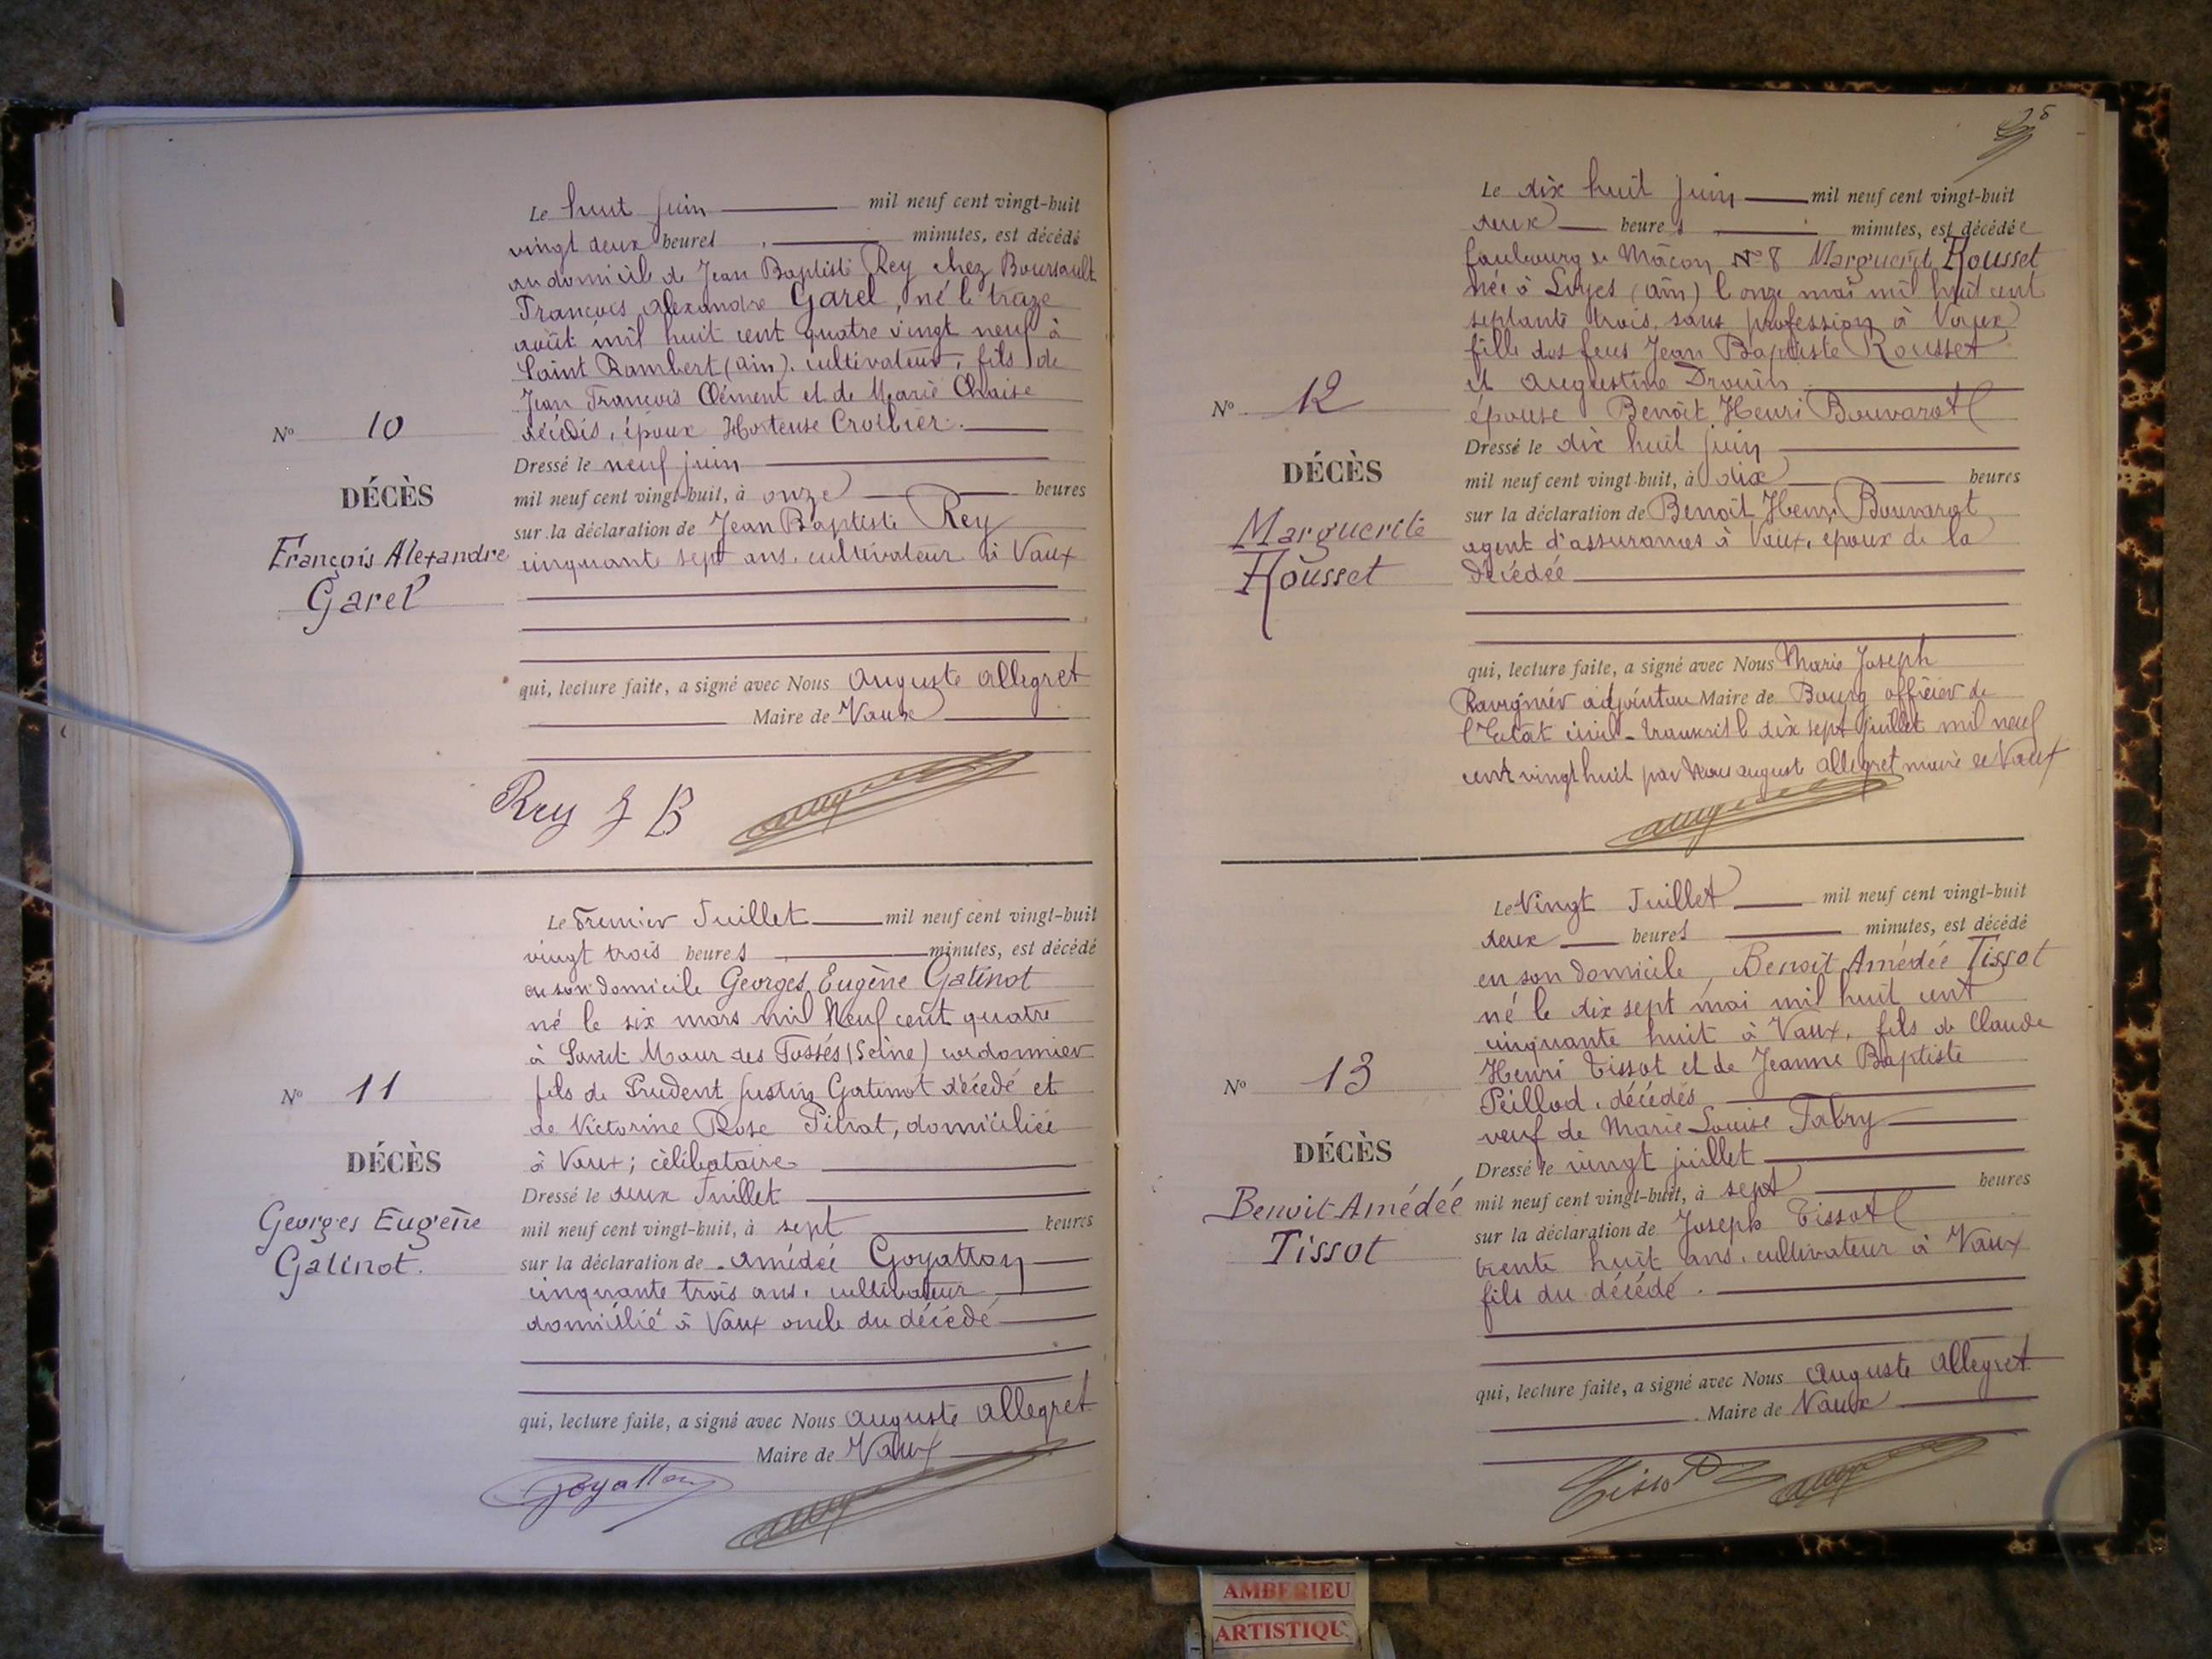 Le huit juin mil neuf cent vingt-huit
vingt deux heures minutes, est décédé
au domicile de Jean Baptiste Rey chez Boursault
François Alexandre Garel, né le treize
août mil huit cent quatre vingt neuf à
Saint Rambert (Ain). cultivateur, fils de
Jean François Clément et de Marie Chaise
décédés, époux Hortense Crollier.
Dressé le neuf juin
mil neuf cent vingt-huit, à onze heures
sur la déclaration de Jean Baptiste Rey
cinquante sept ans, cultivateur à Vaux
qui, lecture faite, a signé avec Nous Auguste Allegret
Maire de Vaux
Rey J B
Nº 10
DÉCÈS
François Alexandre
Garel
Le Premier Juillet mil neuf cent vingt-huit
vingt trois heures minutes, est décédé
en son domicile Georges Eugène Gatinot
né le six mars mil Neuf cent quatre
à Saint Maur des Fossés (Seine) cordonnier
fils de Prudent Justin Gatinot décédé et
de Victorine Rose Pitrat, domiciliée
à Vaux; célibataire
Dressé le deux Juillet
mil neuf cent vingt-huit, à sept heures
sur la déclaration de Amédée Goyatton
cinquante trois ans, cultivateur
domicilié à Vaux oncle du décédé
qui, lecture faite, a signé avec Nous Auguste Allegret
Maire de Vaux
Goyatton
Nº 11
DÉCÈS
Georges Eugène
Gatinot.
Le dix huit juin mil neuf cent vingt-huit
deux heures minutes, est décédée
faubourg de Mâcon Nº 8 Marguerite Rousset
née à Loyes (Ain) le onze mai mil huit cent
septante trois, sans profession à Vaux
fille des feus Jean Baptiste Rousset
et Augustine Drouin
épouse Benoît Henri Bouvarot
Dressé le dix huit juin
mil neuf cent vingt-huit, à dix heures
sur la déclaration de Benoît Henri Bouvarot
agent d'assurances à Vaux, époux de la
décédée
qui, lecture faite, a signé avec Nous Marie Joseph
Ravignier adjoint au Maire de Bourg officier de
l'Etat civil - transcrit le dix sept juillet mil neuf
cent vingt huit par Nous Auguste Allegret maire de Vaux
Nº 12
DÉCÈS
Marguerite
Rousset
Le Vingt Juillet mil neuf cent vingt-huit
deux heures minutes, est décédé
en son domicile, Benoit Amédée Tissot
né le dix sept mai mil huit cent
cinquante huit à Vaux, fils de Claude
Henri Tissot et de Jeanne Baptiste
Peillod, décédés
veuf de Marie Louise Fabry
Dressé le vingt juillet
mil neuf cent vingt-huit, à sept heures
sur la déclaration de Joseph Tissot
trente huit ans, cultivateur à Vaux
fils du décédé.
qui, lecture faite, a signé avec Nous Auguste Allegret
Maire de Vaux
Tissot
Nº 13
DÉCÈS
Benoit Amédée
Tissot
AMBERIEU
ARTISTIQU